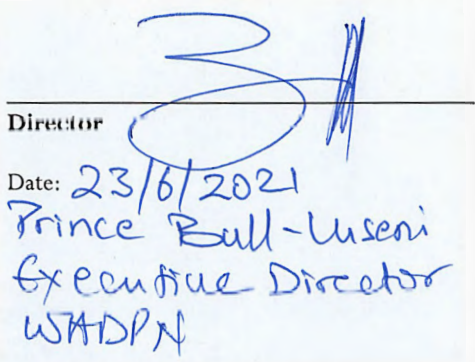 Director
Date: 23/6/2021
Prince Bull-Luseni
Executive Director
WADPN